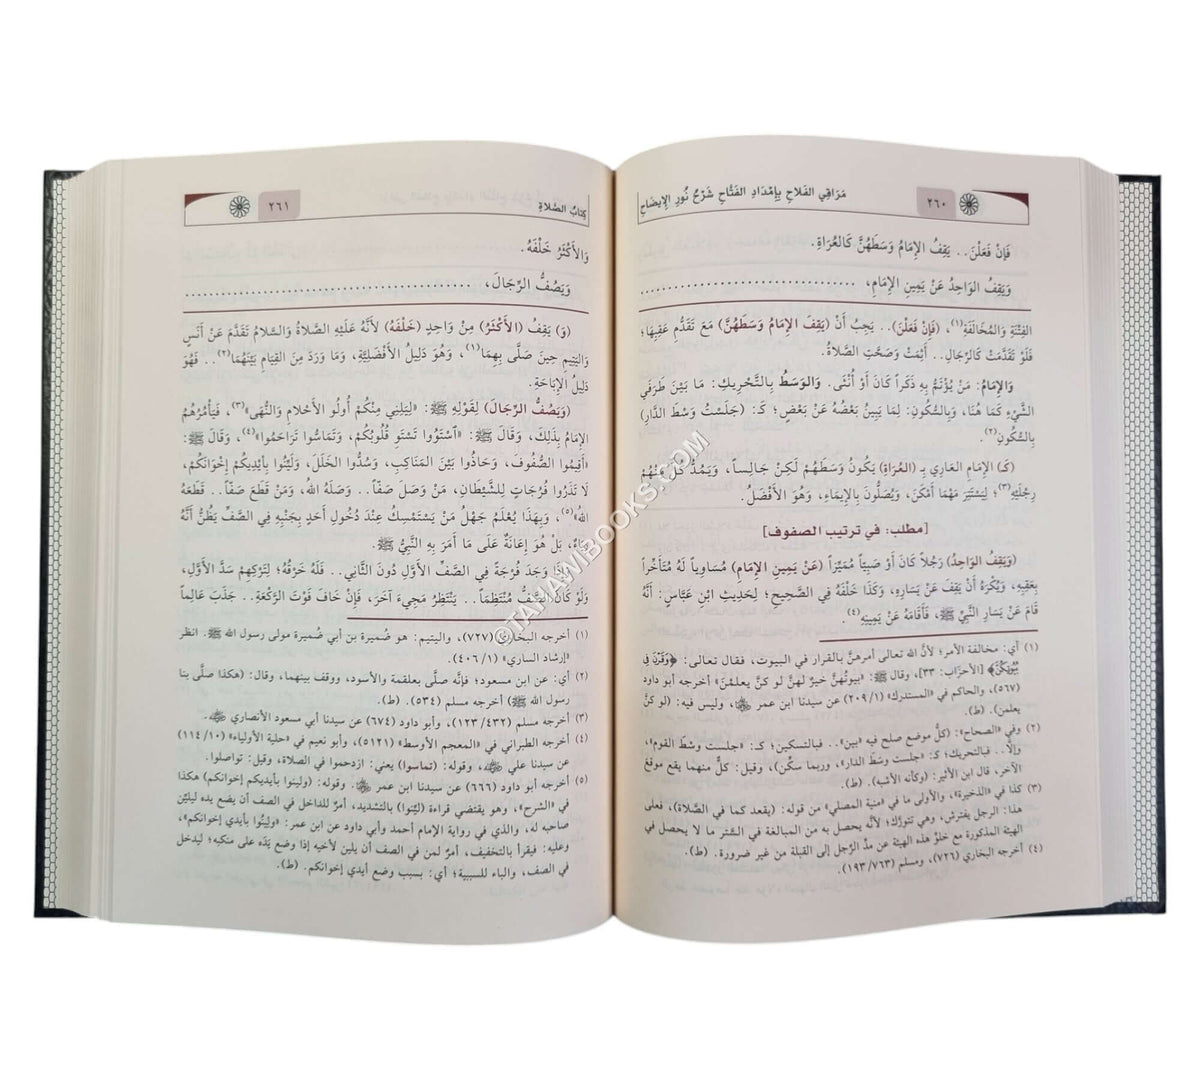 مَرَاقِي الفَلَاحِ بِإِمْدَادِ الفَتَّاحِ شَرْحُ نُورِ الإِيضَاحِ
٢٦٠
فَإِنْ فَعَلْنَ.. يَقِفُ الإِمَامُ وَسَطَهُنَّ كَالعُرَاةِ.
وَيَقِفُ الوَاحِدُ عَنْ يَمِينِ الإِمَامِ، ....................................
الفِتْنَةِ وَالمُخَالَفَةِ(١)، (فَإِنْ فَعَلْنَ).. يَجِبُ أَنْ (يَقِفَ الإِمَامُ وَسَطَهُنَّ) مَعَ تَقَدُّمِ عَقِبِهَا؛
فَلَوْ تَقَدَّمَتْ كَالرِّجَالِ.. أَثِمَتْ وَصَحَّتِ الصَّلَاةُ.
وَالإِمَامُ: مَنْ يُؤْتَمُّ بِهِ ذَكَراً كَانَ أَوْ أُنْثَى. وَالوَسَطُ بِالتَّحْرِيكِ: مَا بَيْنَ طَرَفَيِ
الشَّيْءِ كَمَا هُنَا، وَبِالسُّكُونِ: لِمَا يَبِينُ بَعْضُهُ عَنْ بَعْضٍ؛ كَـ: (جَلَسْتُ وَسْطَ الدَّارِ)
بِالسُّكُونِ(٢).
(كَـ) الإِمَامِ العَارِي بِـ (العُرَاةِ) يَكُونُ وَسَطَهُمْ لَكِنْ جَالِساً، وَيَمُدُّ كُلٌّ مِنْهُمْ
رِجْلَيْهِ(٣)؛ لِيَسْتَتِرَ مَهْمَا أَمْكَنَ، وَيُصَلُّونَ بِالإِيمَاءِ، وَهُوَ الأَفْضَلُ.
[مطلب: في ترتيب الصفوف]
(وَيَقِفُ الوَاحِدُ) رَجُلاً كَانَ أَوْ صَبِيّاً مُمَيِّزاً (عَنْ يَمِينِ الإِمَامِ) مُسَاوِياً لَهُ مُتَأَخِّراً
بِعَقِبِهِ، وَيُكْرَهُ أَنْ يَقِفَ عَنْ يَسَارِهِ، وَكَذَا خَلْفَهُ فِي الصَّحِيحِ؛ لِحَدِيثِ ابْنِ عَبَّاسٍ: أَنَّهُ
قَامَ عَنْ يَسَارِ النَّبِيِّ ﷺ، فَأَقَامَهُ عَنْ يَمِينِهِ(٤).
(١) أي: مخالفة الأمر؛ لأنَّ الله تعالى أمرهنَّ بالقرار في البيوت، فقال تعالى: ﴿وَقَرْنَ فِي
بُيُوتِكُنَّ﴾ [الأحزاب: ٣٣]، وقال ﷺ: «بيوتُهنَّ خيرٌ لهنَّ لو كنَّ يعلمْنَ» أخرجه أبو داود
(٥٦٧)، والحاكم في «المستدرك» (٢٠٩/١) عن سيدنا ابن عمر، وليس فيه: (لو كنَّ
يعلمن). (ط).
(٢) وفي «الصحاح»: (كلُّ موضع صلح فيه «بين».. فبالتسكين؛ كـ: «جلست وسْط القوم»،
وإلَّا.. فبالتحريك؛ كـ: «جلست وسَط الدار»، وربما سكِّن)، وقيل: كلٌّ منهما يقع موقع
الآخر، قال ابن الأثير: (وكأنه الأشبه). (ط).
(٣) كذا في «الذخيرة»، والأولى ما في «منية المصلي» من قوله: (يقعد كما في الصلاة)، فعلى
هذا: الرجل يفترش، وهي تتورَّك؛ لأنَّه يحصل به من المبالغة في السَّتر ما لا يحصل في
الهيئة المذكورة مع خلوِّ هذه الهيئة عن مدِّ الرِّجل إلى القبلة من غير ضرورة. (ط).
(٤) أخرجه البخاري (٧٢٦)، ومسلم (١٩٣/٧٦٣).
كِتَابُ الصَّلَاةِ
٢٦١
وَالأَكْثَرُ خَلْفَهُ.
وَيَصُفُّ الرِّجَالَ، ................................................
(وَ) يَقِفُ (الأَكْثَرُ) مِنْ وَاحِدٍ (خَلْفَهُ) لِأَنَّهُ عَلَيْهِ الصَّلَاةُ وَالسَّلَامُ تَقَدَّمَ عَنْ أَنَسٍ
وَاليَتِيمِ حِينَ صَلَّى بِهِمَا(١)، وَهُوَ دَلِيلُ الأَفْضَلِيَّةِ، وَمَا وَرَدَ مِنَ القِيَامِ بَيْنَهُمَا(٢).. فَهُوَ
دَلِيلُ الإِبَاحَةِ.
(وَيَصُفُّ الرِّجَالَ) لِقَوْلِهِ ﷺ: «لِيَلِنِي مِنْكُمْ أُولُو الأَحْلَامِ وَالنُّهَى»(٣)، فَيَأْمُرُهُمُ
الإِمَامُ بِذَلِكَ، وَقَالَ ﷺ: «اسْتَوُوا تَسْتَوِ قُلُوبُكُمْ، وَتَمَاسُّوا تَرَاحَمُوا»(٤)، وَقَالَ ﷺ:
«أَقِيمُوا الصُّفُوفَ، وَحَاذُوا بَيْنَ المَنَاكِبِ، وَسُدُّوا الخَلَلَ، وَلَيِّنُوا بِأَيْدِيكُمْ إِخْوَانَكُمْ،
لَا تَذَرُوا فُرُجَاتٍ لِلشَّيْطَانِ، مَنْ وَصَلَ صَفّاً.. وَصَلَهُ اللهُ، وَمَنْ قَطَعَ صَفّاً.. قَطَعَهُ
اللهُ»(٥)، وَبِهَذَا يُعْلَمُ جَهْلُ مَنْ يَسْتَمْسِكُ عِنْدَ دُخُولِ أَحَدٍ بِجَنْبِهِ فِي الصَّفِّ يَظُنُّ أَنَّهُ
رِيَاءٌ، بَلْ هُوَ إِعَانَةٌ عَلَى مَا أَمَرَ بِهِ النَّبِيُّ ﷺ.
وَإِذَا وَجَدَ فُرْجَةً فِي الصَّفِّ الأَوَّلِ دُونَ الثَّانِي.. فَلَهُ خَرْقُهُ؛ لِتَرْكِهِمْ سَدَّ الأَوَّلِ،
وَلَوْ كَانَ الصَّفُّ مُنْتَظِماً.. يَنْتَظِرُ مَجِيءَ آخَرَ، فَإِنْ خَافَ فَوْتَ الرَّكْعَةِ.. جَذَبَ عَالِماً
(١) أخرجه البخاري (٧٢٧)، واليتيم: هو ضُميرة بن أبي ضُميرة مولى رسول الله ﷺ. انظر
«إرشاد الساري» (٤٠٦/١).
(٢) أي: عن ابن مسعود؛ فإنَّه صلَّى بعلقمة والأسود، ووقف بينهما، وقال: (هكذا صلَّى بنا
رسول الله ﷺ) أخرجه مسلم (٥٣٤). (ط).
(٣) أخرجه مسلم (١٢٣/٤٣٢)، وأبو داود (٦٧٤) عن سيدنا أبي مسعود الأنصاري.
(٤) أخرجه الطبراني في «المعجم الأوسط» (٥١٢١)، وأبو نعيم في «حلية الأولياء» (١١٤/١٠)
عن سيدنا علي، وقوله: (تماسوا) يعني: ازدحموا في الصلاة، وقيل: تواصلوا.
(٥) أخرجه أبو داود (٦٦٦) عن سيدنا ابن عمر. وقوله: (ولينوا بأيديكم إخوانكم) هكذا
في «الشرح»، وهو يقتضي قراءة (ليِّنوا) بالتشديد، أمرٌ للداخل في الصف أن يضع يده ليليِّن
صاحبه له، والذي في رواية الإمام أحمد وأبي داود عن ابن عمر: «ولِينُوا بأيدي إخوانكم»،
وعليه: فيقرأ بالتخفيف، أمرٌ لمن في الصف أن يلين لأخيه إذا وضع يدَه على منكبه؛ ليدخل
في الصف، والباء للسببية؛ أي: بسبب وضع أيدي إخوانكم. (ط).
©TAHAWIBOOKS.COM